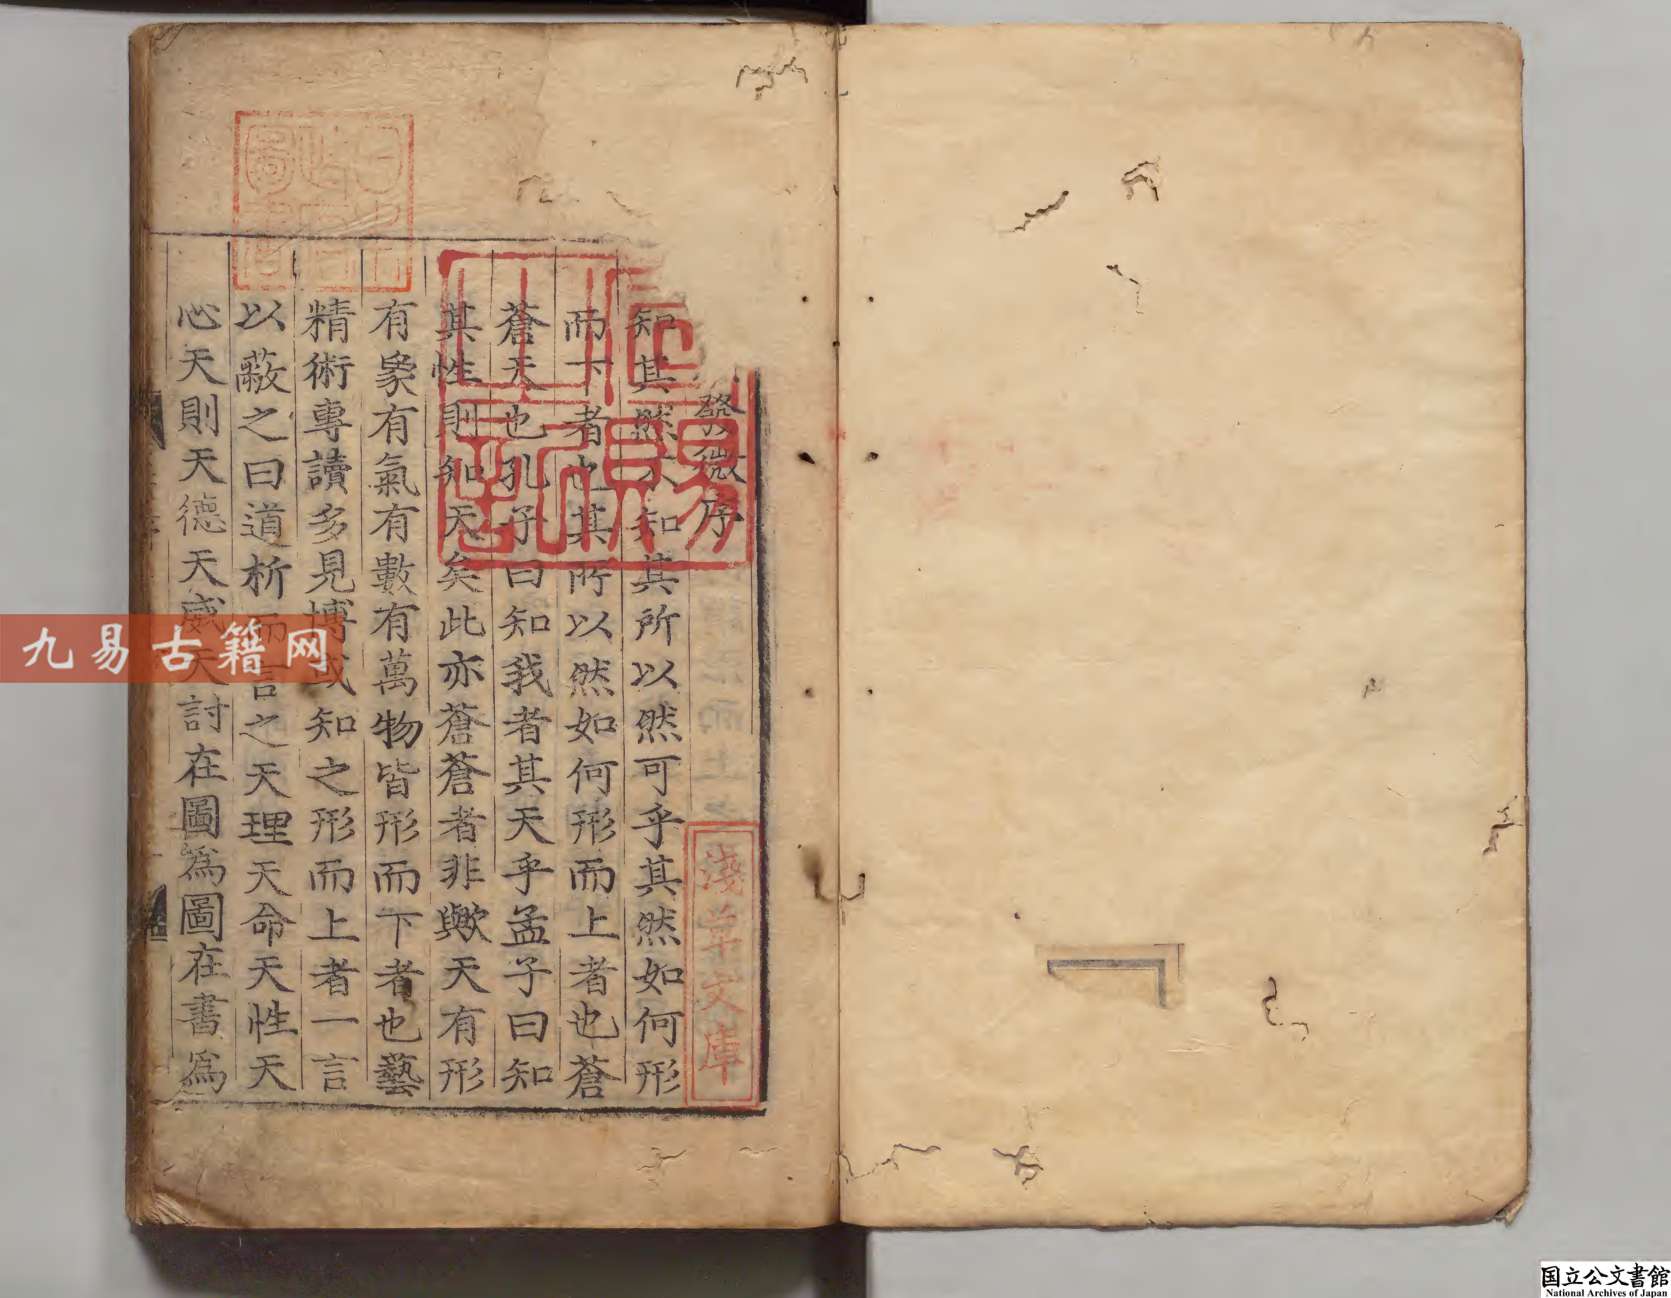 發微序
知其然不知其所以然可乎其然如何形
而下者也其所以然如何形而上者也蒼
蒼天也孔子曰知我者其天乎孟子曰知
其性則知天矣此亦蒼蒼者非歟天有形
有象有氣有數有萬物皆形而下者也藝
精術專讀多見博或知之形而上者一言
以蔽之曰道析而言之天理天命天性天
心天則天德天威天討在圖爲圖在書爲
淺草文庫
九易古籍网
国立公文書館
National Archives of Japan